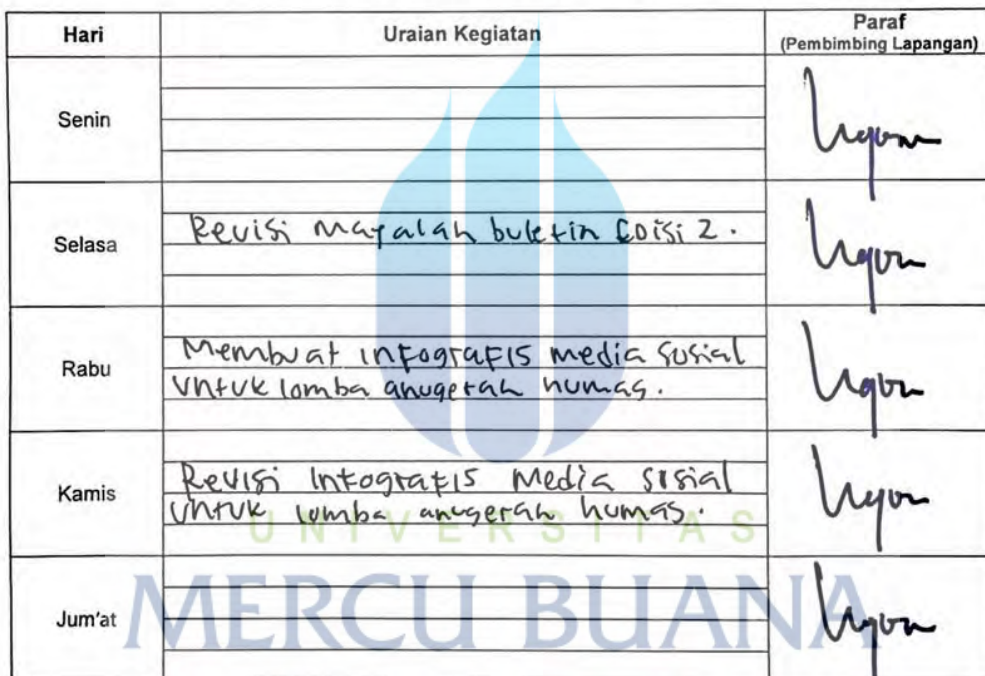 Hari Uraian Kegiatan Paraf
(Pembimbing Lapangan)
Senin
Selasa
Revisi majalah buletin Edisi 2.
Rabu
Membuat infografis media sosial
untuk lomba anugerah humas.
Kamis
Revisi Infografis Media sosial
untuk lomba anugerah humas.
UNIVERSITAS
Jum'at
MERCU BUANA